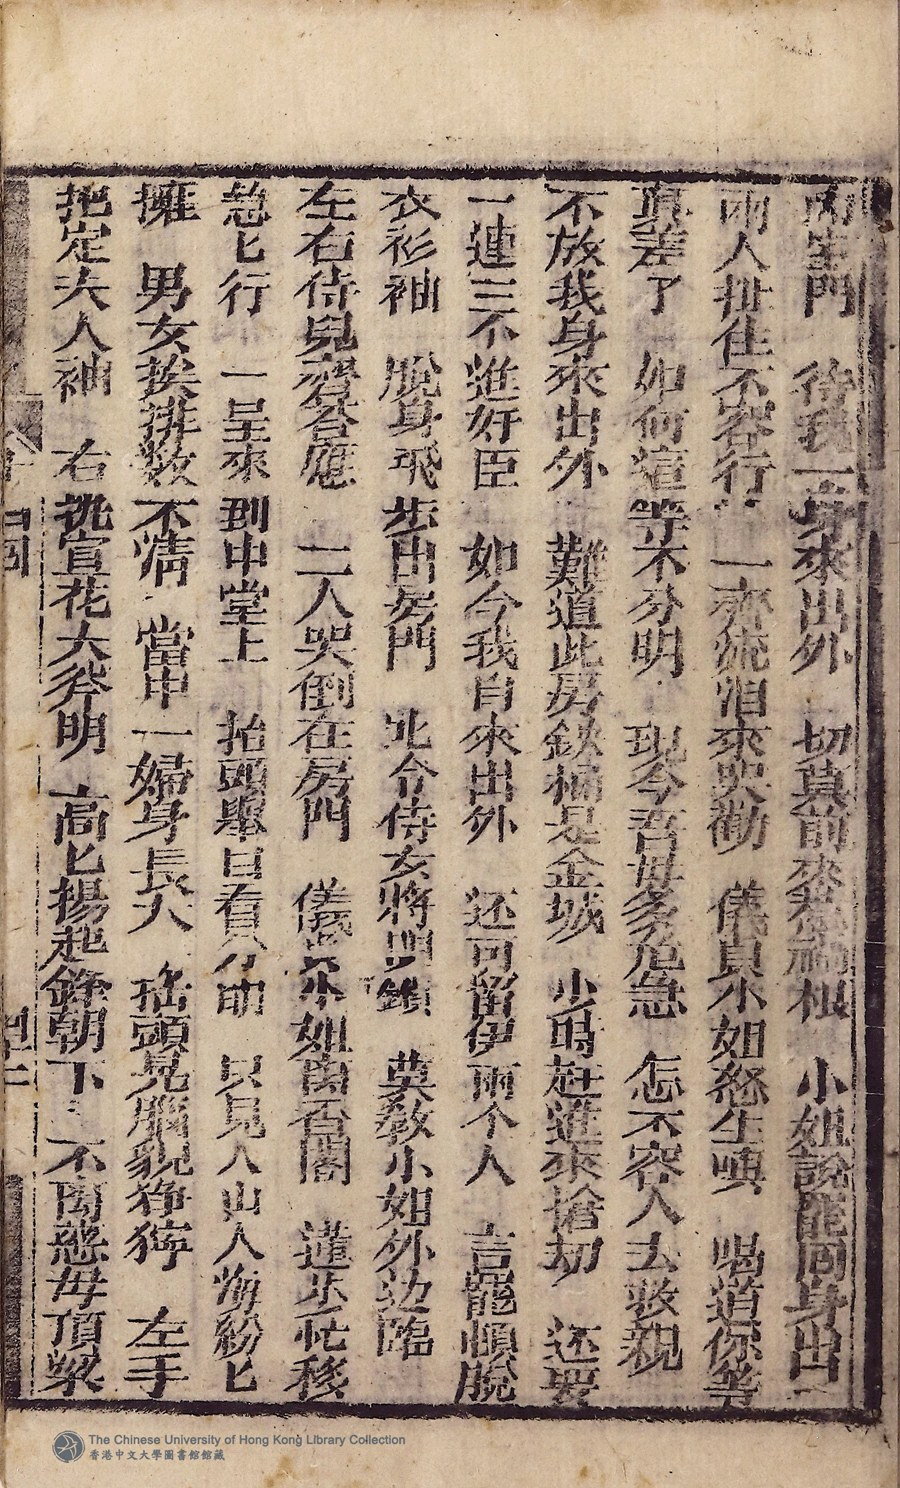 門 待我一身來出外 切莫前來惹禍根 小姐說罷同身出
兩人扯住不容行 一齊流泪來哭勸 儀貞小姐怒生嗔 喝道你等
真差了 如何這等不分明 現今吾母多危急 怎不容人去救親
不放我身來出外 難道此房鉄桶是金城 少時赶進來搶刼 还要
一連三不進奸臣 如今我自來出外 还可留伊兩个人 言罷頓脫
衣衫袖 脫身飛步出房門 北令侍女將門鎖 莫教小姐外边臨
左右侍兒齊答應 二人哭倒在房門 儀貞小姐离香閣 蓮步忙移
急匕行 一呈來到中堂上 抬頭舉目看分明 只見人山人海紛匕
擁 男女挨排数不清 當中一婦身長大 抬頭見腦貌猙獰 左手
把定夫人袖 右 宣花大斧明 高匕揚起鋒朝下 不离慈母頂梁
四回